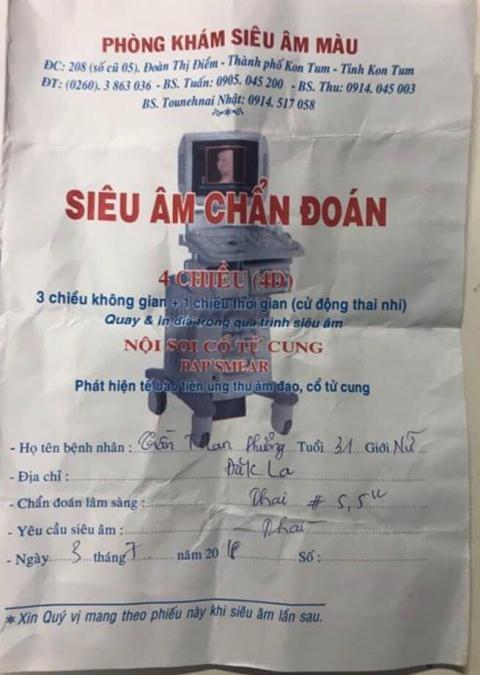 PHÒNG KHÁM SIÊU ÂM MÀU
ĐC: 208 (số cũ 05). Đoàn Thị Điểm - Thành phố Kon Tum - Tỉnh Kon Tum
ĐT: (0260). 3 863 036 - BS. Tuấn: 0905. 045 200 - BS. Thu: 0914. 045 003
BS. Tounehnai Nhật: 0914. 517 058
SIÊU ÂM CHẨN ĐOÁN
4 CHIỀU (4D)
3 chiều không gian + 1 chiều thời gian (cử động thai nhi)
Quay & in đĩa trong quá trình siêu âm
NỘI SOI CỔ TỬ CUNG
PAP'SMEAR
Phát hiện tế bào tiền ung thư âm đạo, cổ tử cung
- Họ tên bệnh nhân : Phương Tuổi 31 Giới Nữ
- Địa chỉ : Đăk La
- Chẩn đoán lâm sàng : Thai # 5,5
- Yêu cầu siêu âm : Thai
- Ngày 3 tháng 7 năm 2018 Số :
* Xin Quý vị mang theo phiếu này khi siêu âm lần sau.